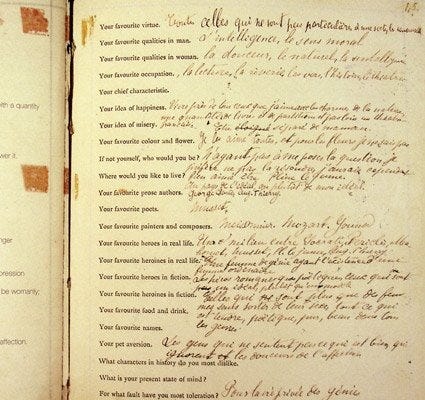 145.
Your favourite virtue. Toutes celles qui ne sont pas particulières à une secte, les universelles
Your favourite qualities in man. L'intelligence, le sens moral
Your favourite qualities in woman. la douceur, le naturel, l'intelligence
Your favourite occupation. La lecture, la rêverie, les vers, l'histoire, le théâtre
Your chief characteristic.
Your idea of happiness. Vivre près de tous ceux que j'aime avec les charmes de la nature
une quantité de livres et de partitions, et pas loin un théâtre
français
Your idea of misery. Etre séparé de maman
Your favourite colour and flower. Je les aime toutes, et pour les fleurs je ne sais pas
If not yourself, who would you be? N'ayant pas à me poser la question, je
préfère ne pas la résoudre. J'aurais cependant
bien aimé être Pline le Jeune.
Where would you like to live? Au pays de l'idéal ou plutôt de mon idéal
Your favourite prose authors. George Sand, Aug. Thierry
Your favourite poets. Musset
Your favourite painters and composers. Meissonier. Mozart. Gounod
Your favourite heroes in real life. Un milieu entre Socrate, Périclès, Maho
met, Musset, Pline le Jeune, Aug. Thierry
Your favourite heroines in real life. Une femme de génie ayant l'existence d'une
femme ordinaire
Your favourite heroes in fiction. Les héros romanesques poétiques ceux qui sont
un idéal plutôt qu'un modèle
Your favourite heroines in fiction. Celles qui sont plus que des fem
mes sans sortir de leur sexe, tout ce qui
Your favourite food and drink. est tendre, poétique, pur, beau dans tous
les genres
Your favourite names.
Your pet aversion. Les gens qui ne sentent pas ce qui est bien, qui
ignorent les douceurs de l'affection
What characters in history do you most dislike.
What is your present state of mind?
For what fault have you most toleration? Pour la vie privée des génies
with a quantity
wer it.
nger
pression
be warranty;
affection.